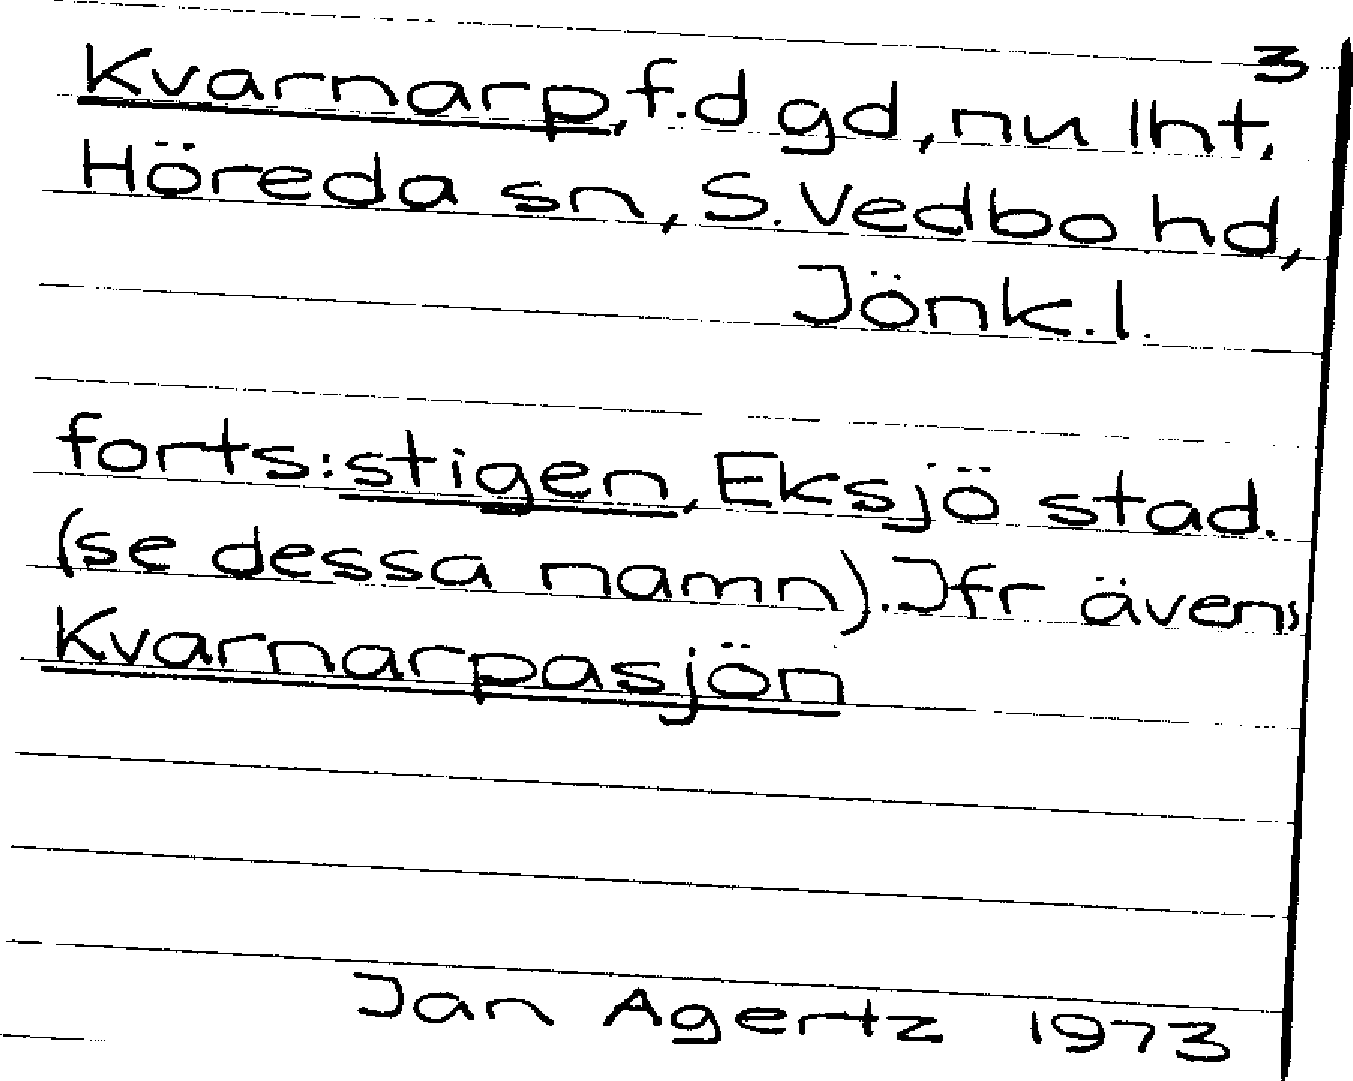 3
Kvarnarp, f.d gd, nu lht,
Höreda sn, S. Vedbo hd,
Jönk. l.
forts: stigen, Eksjö stad.
(se dessa namn). Jfr även
Kvarnarpasjön
Jan Agertz 1973